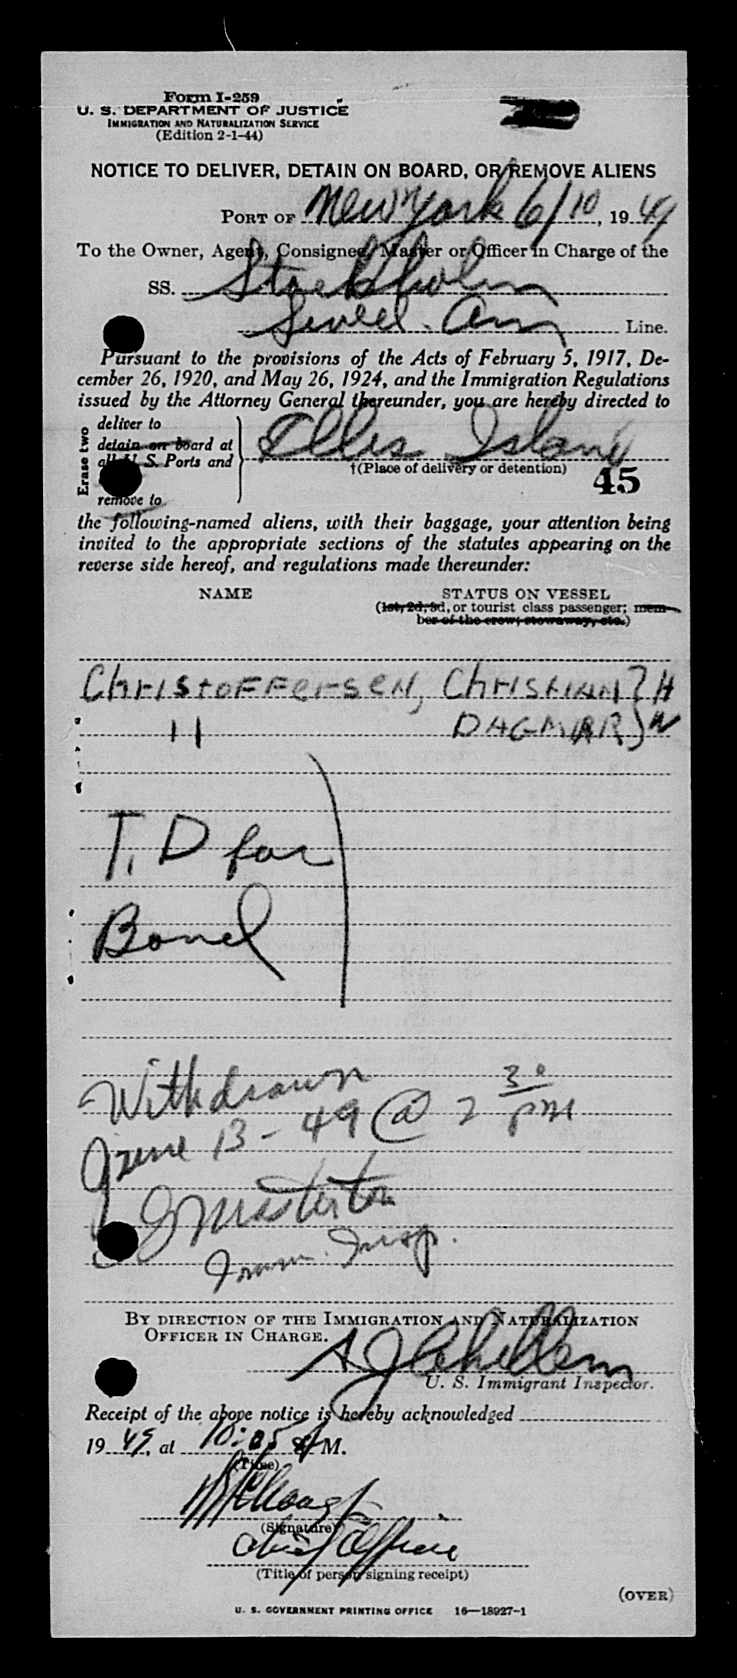 Form I-259
U. S. DEPARTMENT OF JUSTICE
IMMIGRATION AND NATURALIZATION SERVICE
(Edition 2-1-44)
NOTICE TO DELIVER, DETAIN ON BOARD, OR REMOVE ALIENS
PORT OF New York 6/10, 1949
To the Owner, Agent, Consignee, Master or Officer in Charge of the
SS. Stockholm
Swed. Am Line.
Pursuant to the provisions of the Acts of February 5, 1917, De-
cember 26, 1920, and May 26, 1924, and the Immigration Regulations
issued by the Attorney General thereunder, you are hereby directed to
Erase two
deliver to
detain on board at
all U. S. Ports and
remove to
Ellis Island
†(Place of delivery or detention)
45
the following-named aliens, with their baggage, your attention being
invited to the appropriate sections of the statutes appearing on the
reverse side hereof, and regulations made thereunder:
NAME STATUS ON VESSEL
(1st, 2d, 3d, or tourist class passenger; mem-
ber of the crew; stowaway, etc.)
Christoffersen, Christian } H
11 DAGMAR } W
T. D for
Bond
Withdrawn
June 13-49 @ 2 30 PM
J Masterton
Imm. Insp.
BY DIRECTION OF THE IMMIGRATION AND NATURALIZATION
OFFICER IN CHARGE.
U. S. Immigrant Inspector.
Receipt of the above notice is hereby acknowledged
1949, at 10:05 M.
(Time)
(Signature)
Chief Officer
(Title of person signing receipt)
(OVER)
U. S. GOVERNMENT PRINTING OFFICE 16—18927-1